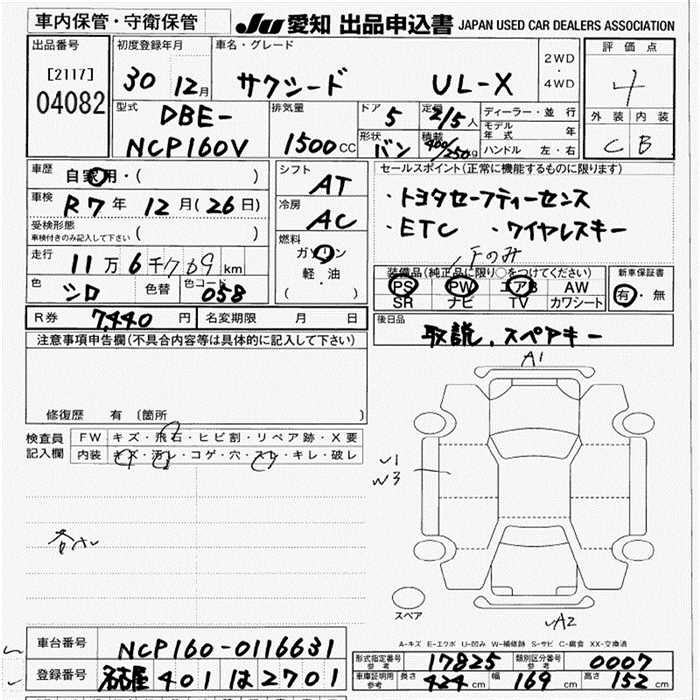 車内保管・守衛保管
JU 愛知 出品申込書 JAPAN USED CAR DEALERS ASSOCIATION
出品番号
[2117]
04082
初度登録年月
30 12月
車名・グレード
サクシード UL-X
2WD
・
4WD
評価点
4
外装 内装
C B
型式
DBE-
NCP160V
排気量
1500cc
ドア
5
定員
2/5人
形状
バン
積載
400/250kg
ディーラー・並行
モデル年式 年
ハンドル 左・右
車歴
自家用・( )
車検
R7年 12月(26日)
受検形態
車検付きのみ記入して下さい ( )
走行
11万6千769km
色
シロ
色替
色コード
058
シフト
AT
冷房
AC
燃料
ガソリン
軽・油
( )
セールスポイント(正常に機能するものに限ります)
・トヨタセーフティーセンス
・ETC ・ワイヤレスキー
装備品(純正品に限り○をつけてください)
PS PW エアB AW
SR ナビ TV カワシート
新車保証書
有・無
R券 7,440円
名変期限 月 日
後日品
取説、スペアキー
注意事項申告欄(不具合内容等は具体的に記入して下さい)
修復歴 有 〔箇所 〕
検査員
記入欄
FW キズ・飛石・ヒビ割・リペア跡・X要
内装 キズ・汚レ・コゲ・穴・スレ・キレ・破レ
A1
W3
A2
スペア
A-キズ E-エクボ U-凹み W-補修跡 S-サビ C-腐食 XX-交換済
車台番号 NCP160-0116631
登録番号 名古屋 401 は 2701
形式指定番号
参考
17825
類別区分番号
参考
0007
車庫証明用
参考
長さ 424cm 幅 169cm 高さ 152cm